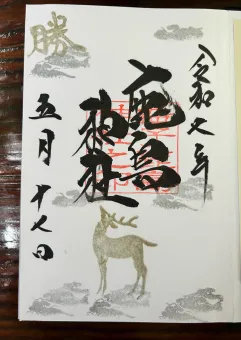 勝
令和七年
鹿島
神社
五月十七日